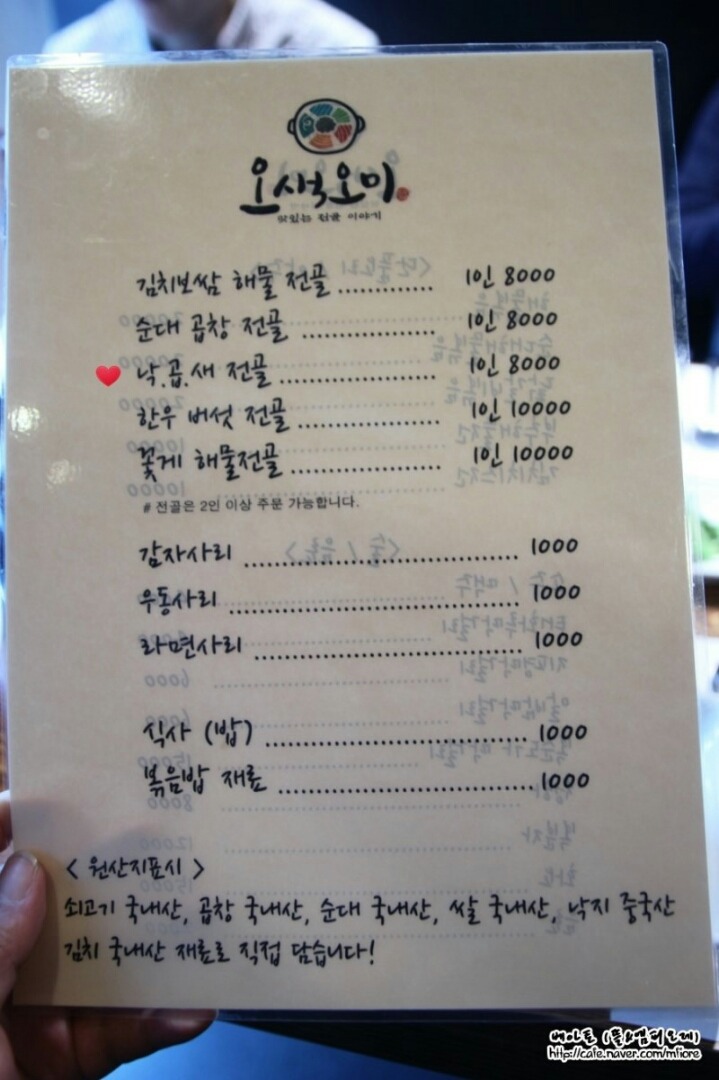 오색오미
맛있는 전골 이야기
김치보쌈 해물 전골 .............. 1인 8000
순대 곱창 전골 .............. 1인 8000
낙.곱.새 전골 .............. 1인 8000
한우 버섯 전골 .............. 1인 10000
꽃게 해물전골 .............. 1인 10000
# 전골은 2인 이상 주문 가능합니다.
감자사리 .............. 1000
우동사리 .............. 1000
라면사리 .............. 1000
식사 (밥) .............. 1000
볶음밥 재료 .............. 1000
< 원산지표시 >
쇠고기 국내산, 곱창 국내산, 순대 국내산, 쌀 국내산, 낙지 중국산
김치 국내산 재료로 직접 담습니다!
http://cafe.naver.com/mliore